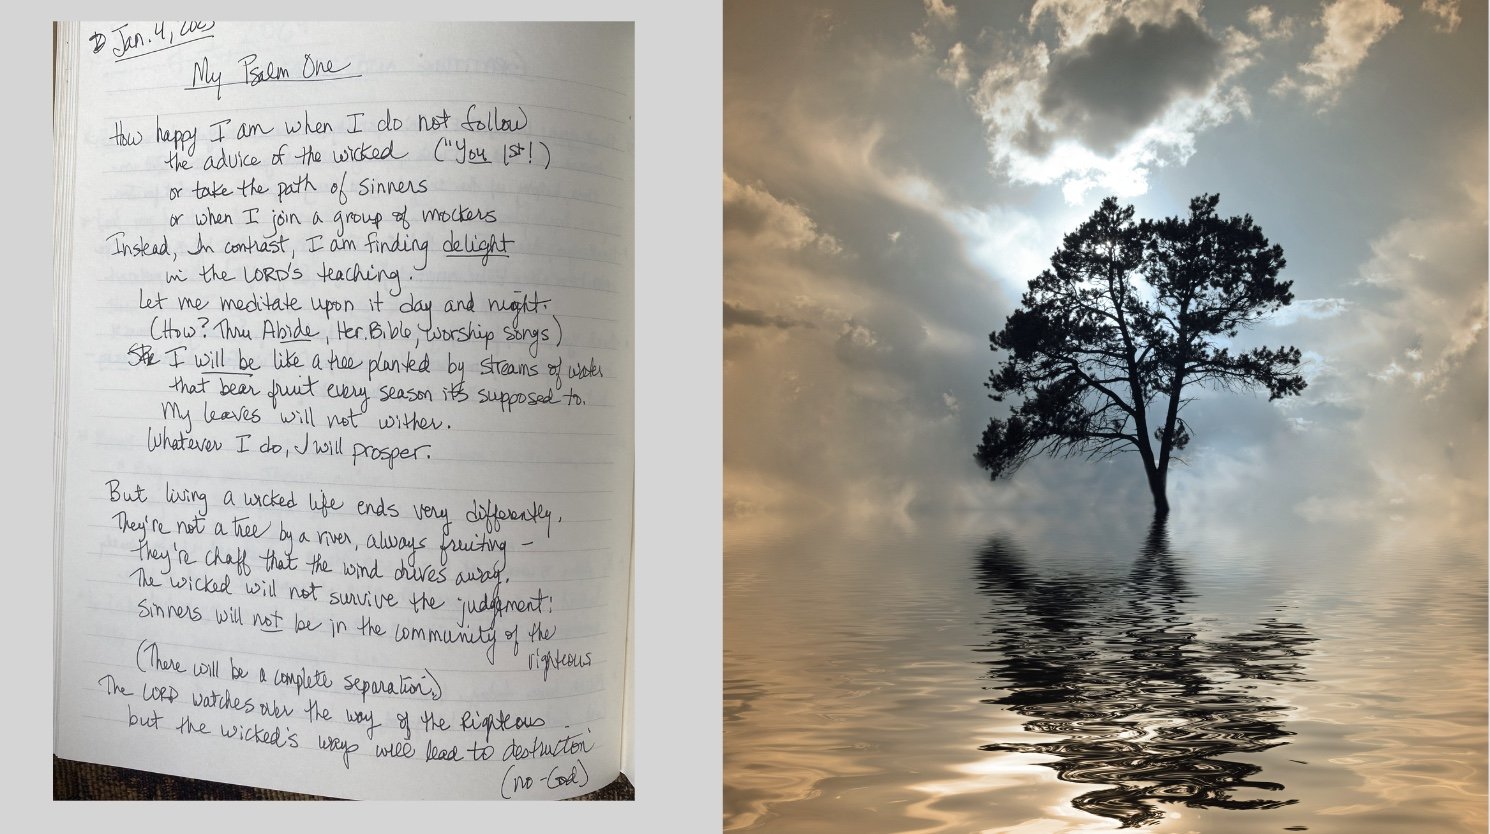 Jan. 4, 2025
My Psalm One
How happy I am when I do not follow
the advice of the wicked ("You 1st!)
or take the path of sinners
or when I join a group of mockers
Instead, In contrast, I am finding delight
in the LORD'S teaching.
Let me meditate upon it day and night.
(How? Thru Abide, Her.Bible, worship songs)
I will be like a tree planted by streams of water
that bear fruit every season it's supposed to.
My leaves will not wither.
Whatever I do, I will prosper.
But living a wicked life ends very differently.
They're not a tree by a river, always fruiting –
they're chaff that the wind drives away.
The wicked will not survive the judgement!
Sinners will not be in the community of the
righteous
(There will be a complete separation.)
The LORD watches over the way of the Righteous
but the wicked's ways will lead to destruction
(no-God)